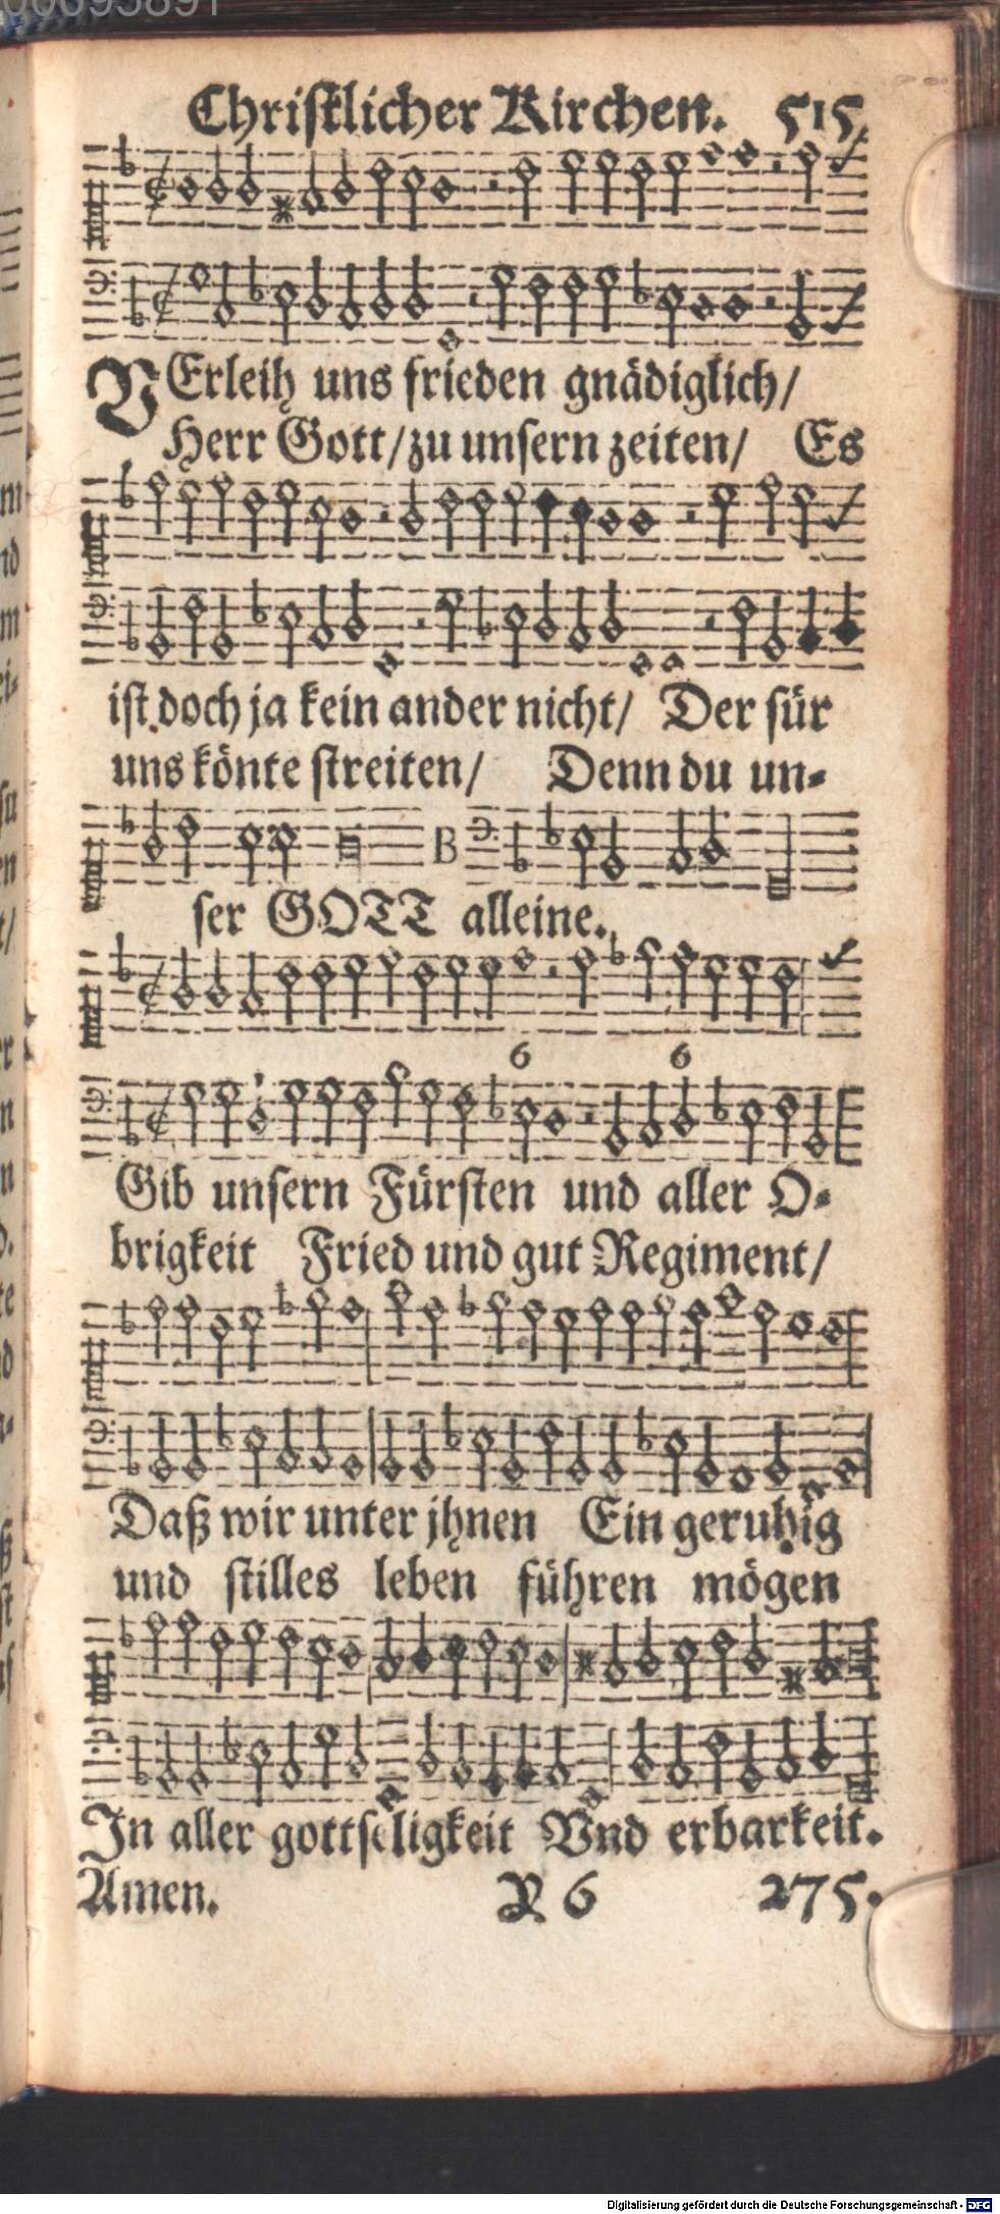 00695891
Christlicher Kirchen. 515.
VErleih uns frieden gnädiglich/
Herr Gott/ zu unsern zeiten/ Es
ist doch ja kein ander nicht/ Der für
uns könte streiten/ Denn du un-
B
ser GOTT alleine.
6 6
Gib unsern Fürsten und aller O-
brigkeit Fried und gut Regiment/
Daß wir unter jhnen Ein geruhig
und stilles leben führen mögen
In aller gottseligkeit Vnd erbarkeit.
Amen. R 6 275.
Digitalisierung gefördert durch die Deutsche Forschungsgemeinschaft - DFG